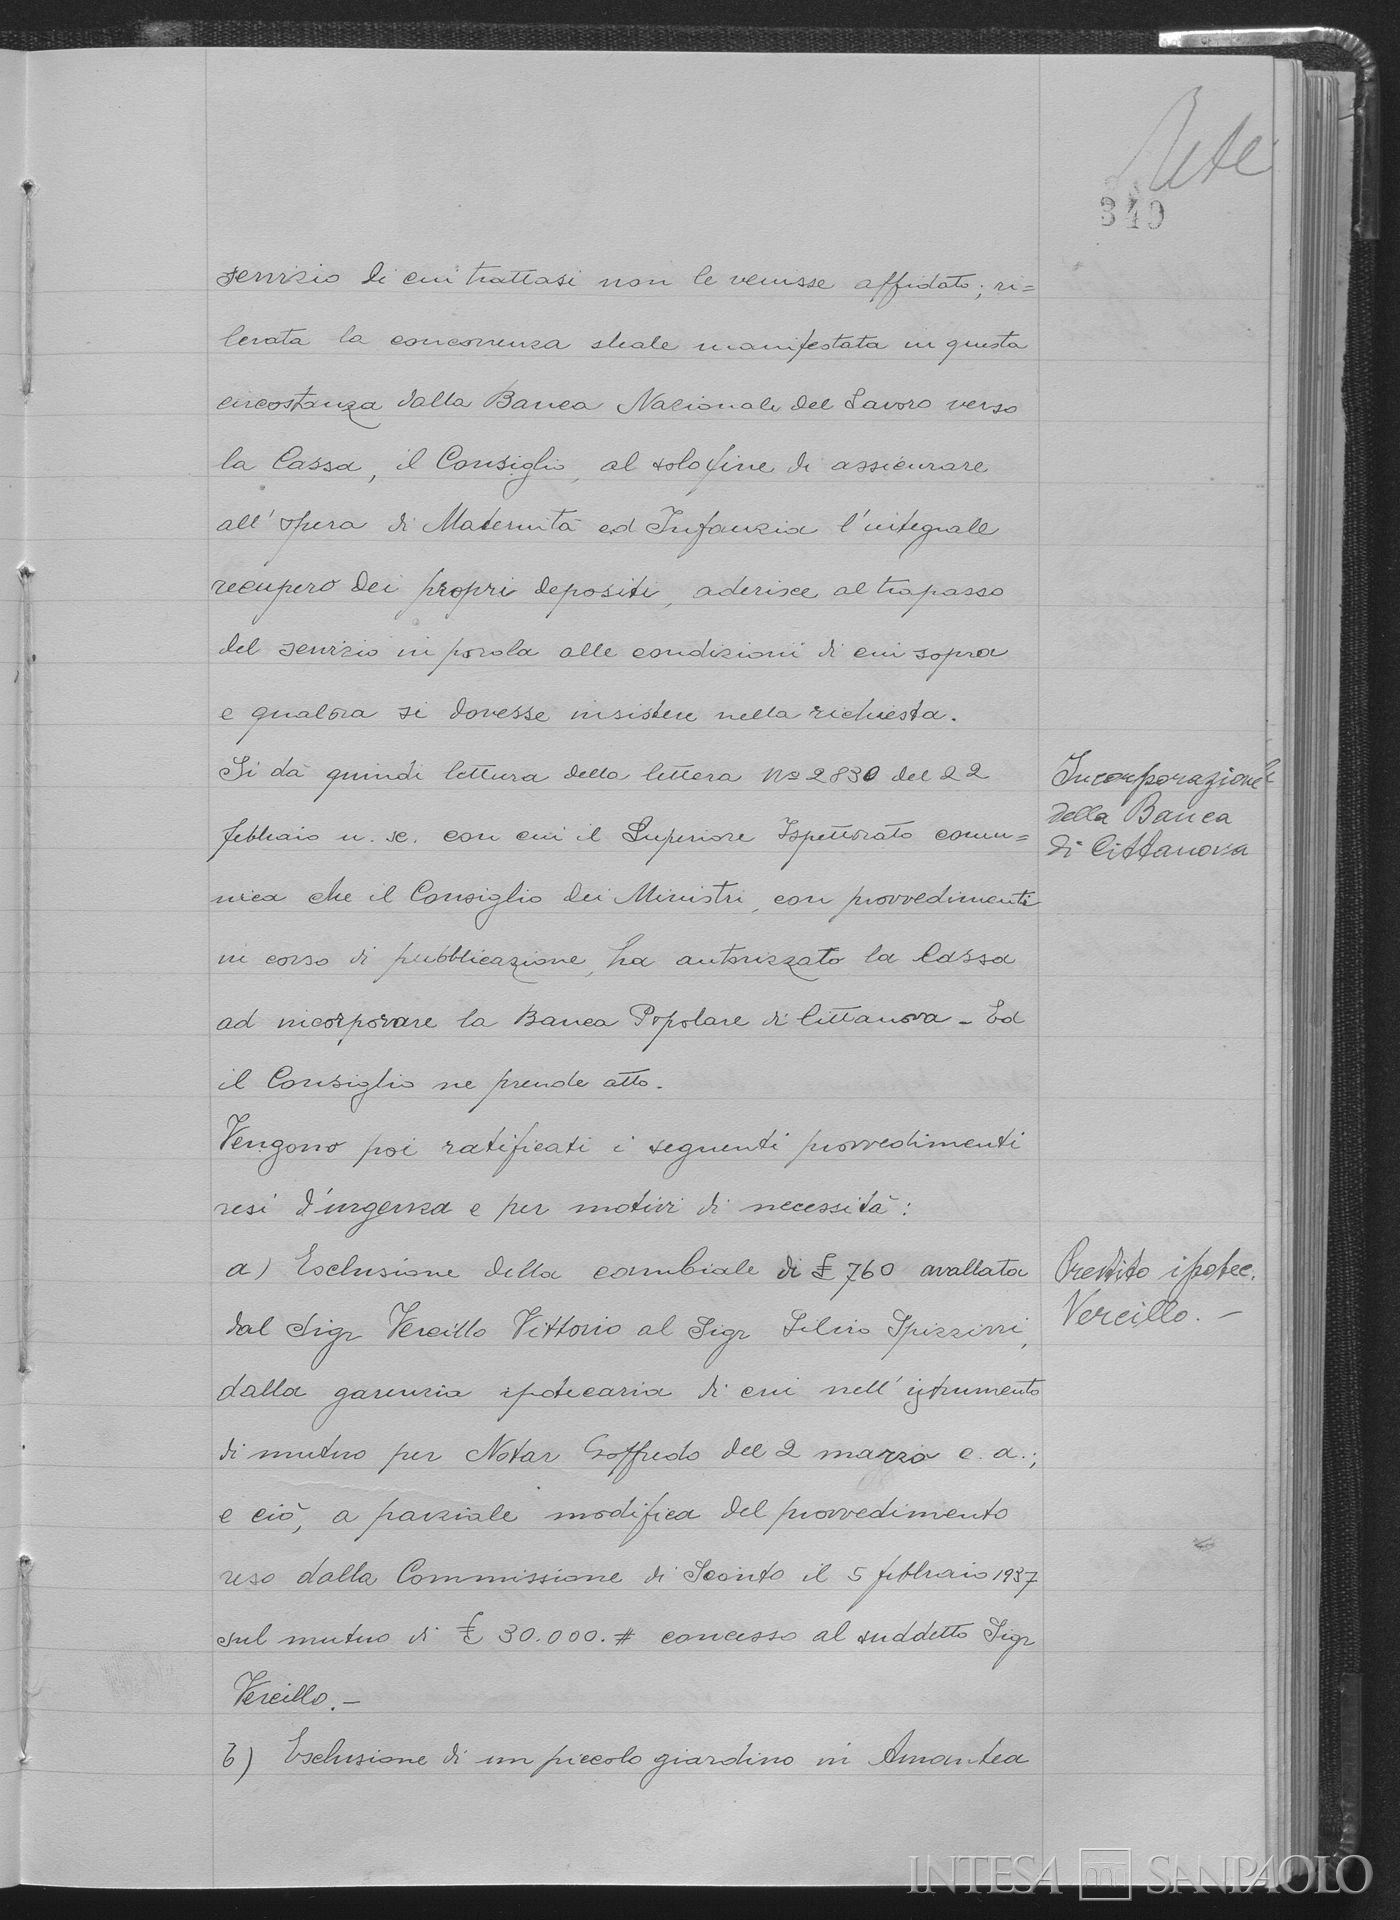 349
servizio di cui trattasi non le venisse affidato; ri=
levata la concorrenza sleale manifestata in questa
circostanza dalla Banca Nazionale del Lavoro verso
la Cassa, il Consiglio, al solo fine di assicurare
all'opera di Maternità ed Infanzia l'integrale
recupero dei propri depositi, aderisce al trapasso
del servizio in parola alle condizioni di cui sopra
e qualora si dovesse insistere nella richiesta.
Si dà quindi lettura della lettera No 2830 del 22
febbraio u. sc. con cui il Superiore Ispettorato comu=
nica che il Consiglio dei Ministri, con provvedimenti
in corso di pubblicazione, ha autorizzato la Cassa
ad incorporare la Banca Popolare di Cittanova - Ed
il Consiglio ne prende atto.
Incorporazione
della Banca
di Cittanova
Vengono poi ratificati i seguenti provvedimenti
resi d'urgenza e per motivi di necessità:
a) Esclusione della cambiale di £ 760 avallata
dal Sigr Vercillo Vittorio al Sigr Silvio Spizzirri,
dalla garenzia ipotecaria di cui nell'istrumento
di mutuo per Notar Goffredo del 2 marzo c. a.;
e ciò, a parziale modifica del provvedimento
reso dalla Commissione di Sconto il 5 febbraio 1937
sul mutuo di £ 30.000.# concesso al suddetto Sigr
Vercillo.-
Prestito ipotec.
Vercillo. -
b) Esclusione di un piccolo giardino in Amantea
INTESA SANPAOLO